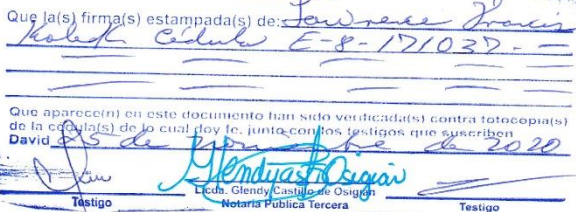 Que la(s) firma(s) estampada(s) de: Lawrence Francis
Cédula E-8-171037.-
Que aparece(n) en este documento han sido verificada(s) contra fotocopia(s)
de la cédula(s) de lo cual doy fe, junto con los testigos que suscriben
David 25 de Noviembre de 2020
Glendy Osigian
Licda. Glendy Castillo de Osigian
Testigo Notaria Publica Tercera Testigo